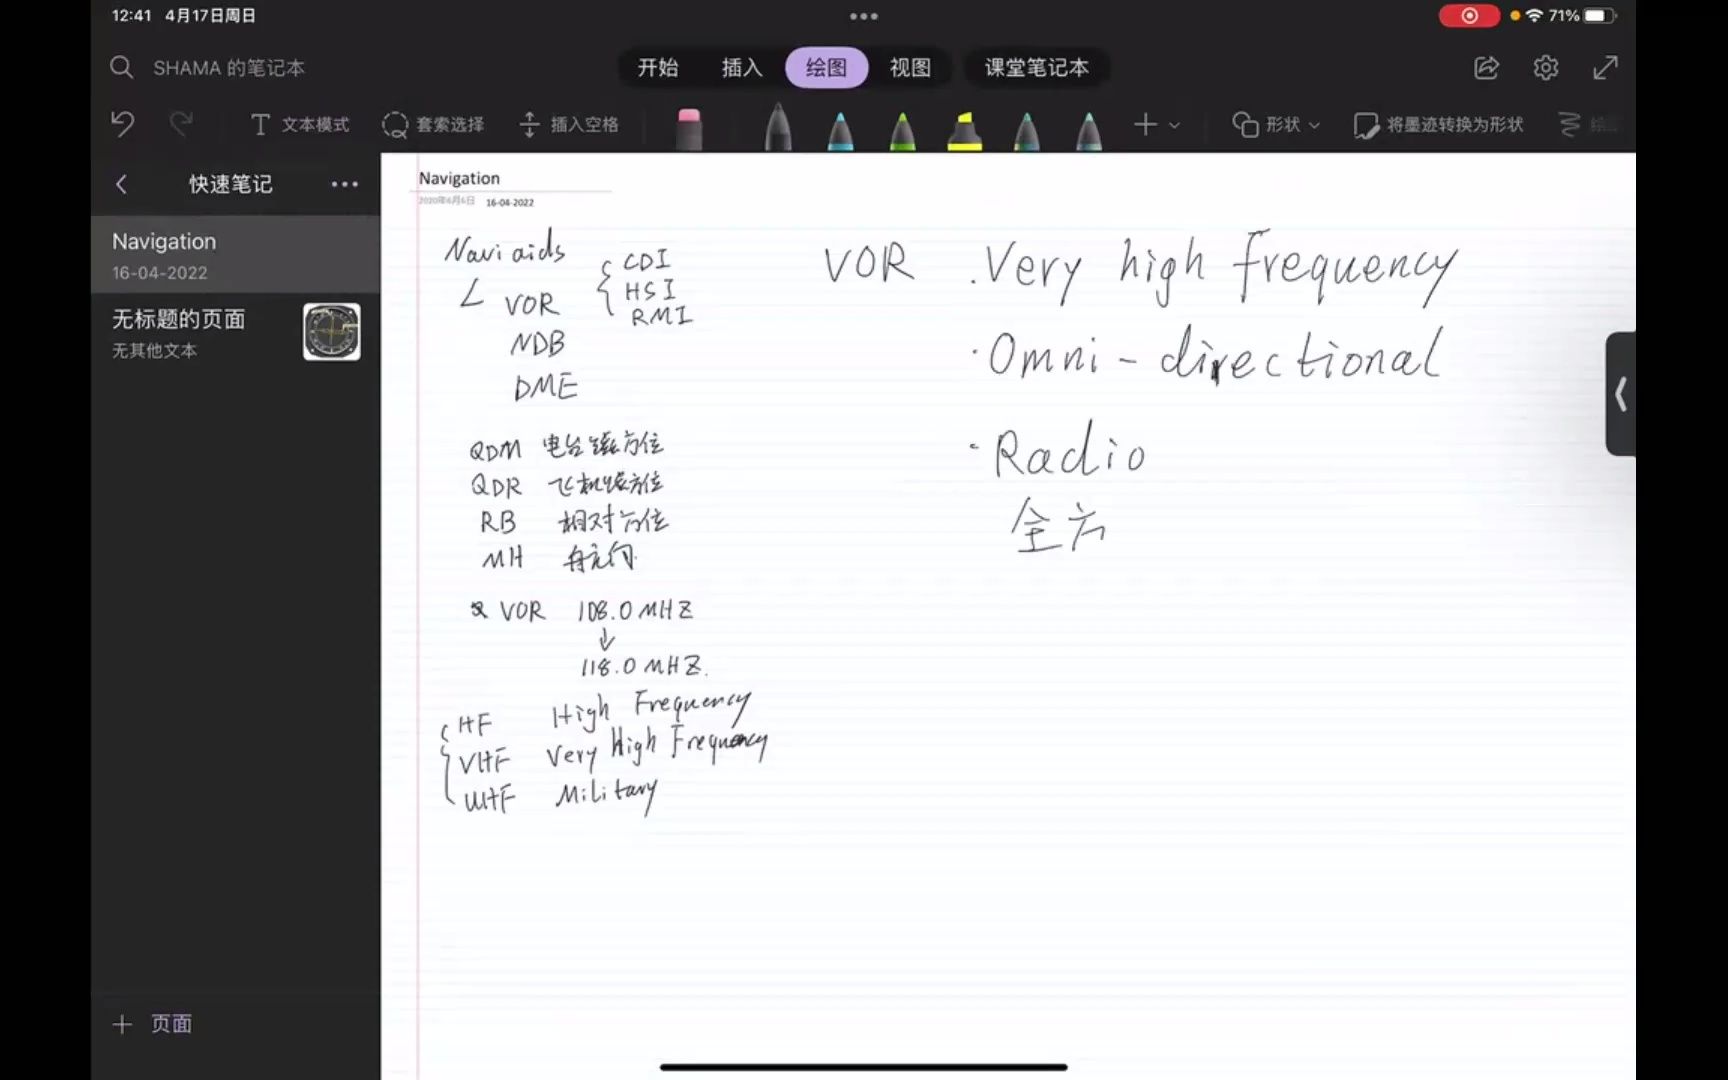 12:41 4月17日周日
71%
SHAMA 的笔记本
开始 插入 绘图 视图 课堂笔记本
文本模式 套索选择 插入空格 形状 将墨迹转换为形状
快速笔记
Navigation
16-04-2022
无标题的页面
无其他文本
页面
Navigation
2020年6月6日 16-04-2022
Navi aids
CDI
HSI
RMI
VOR
NDB
DME
QDM 电台磁方位
QDR 飞机磁方位
RB 相对方位
MH 航向
VOR 108.0 MHZ
↓
118.0 MHZ.
HF High Frequency
VHF Very High Frequency
UHF Military
VOR · Very high frequency
· Omni - directional
· Radio
全方